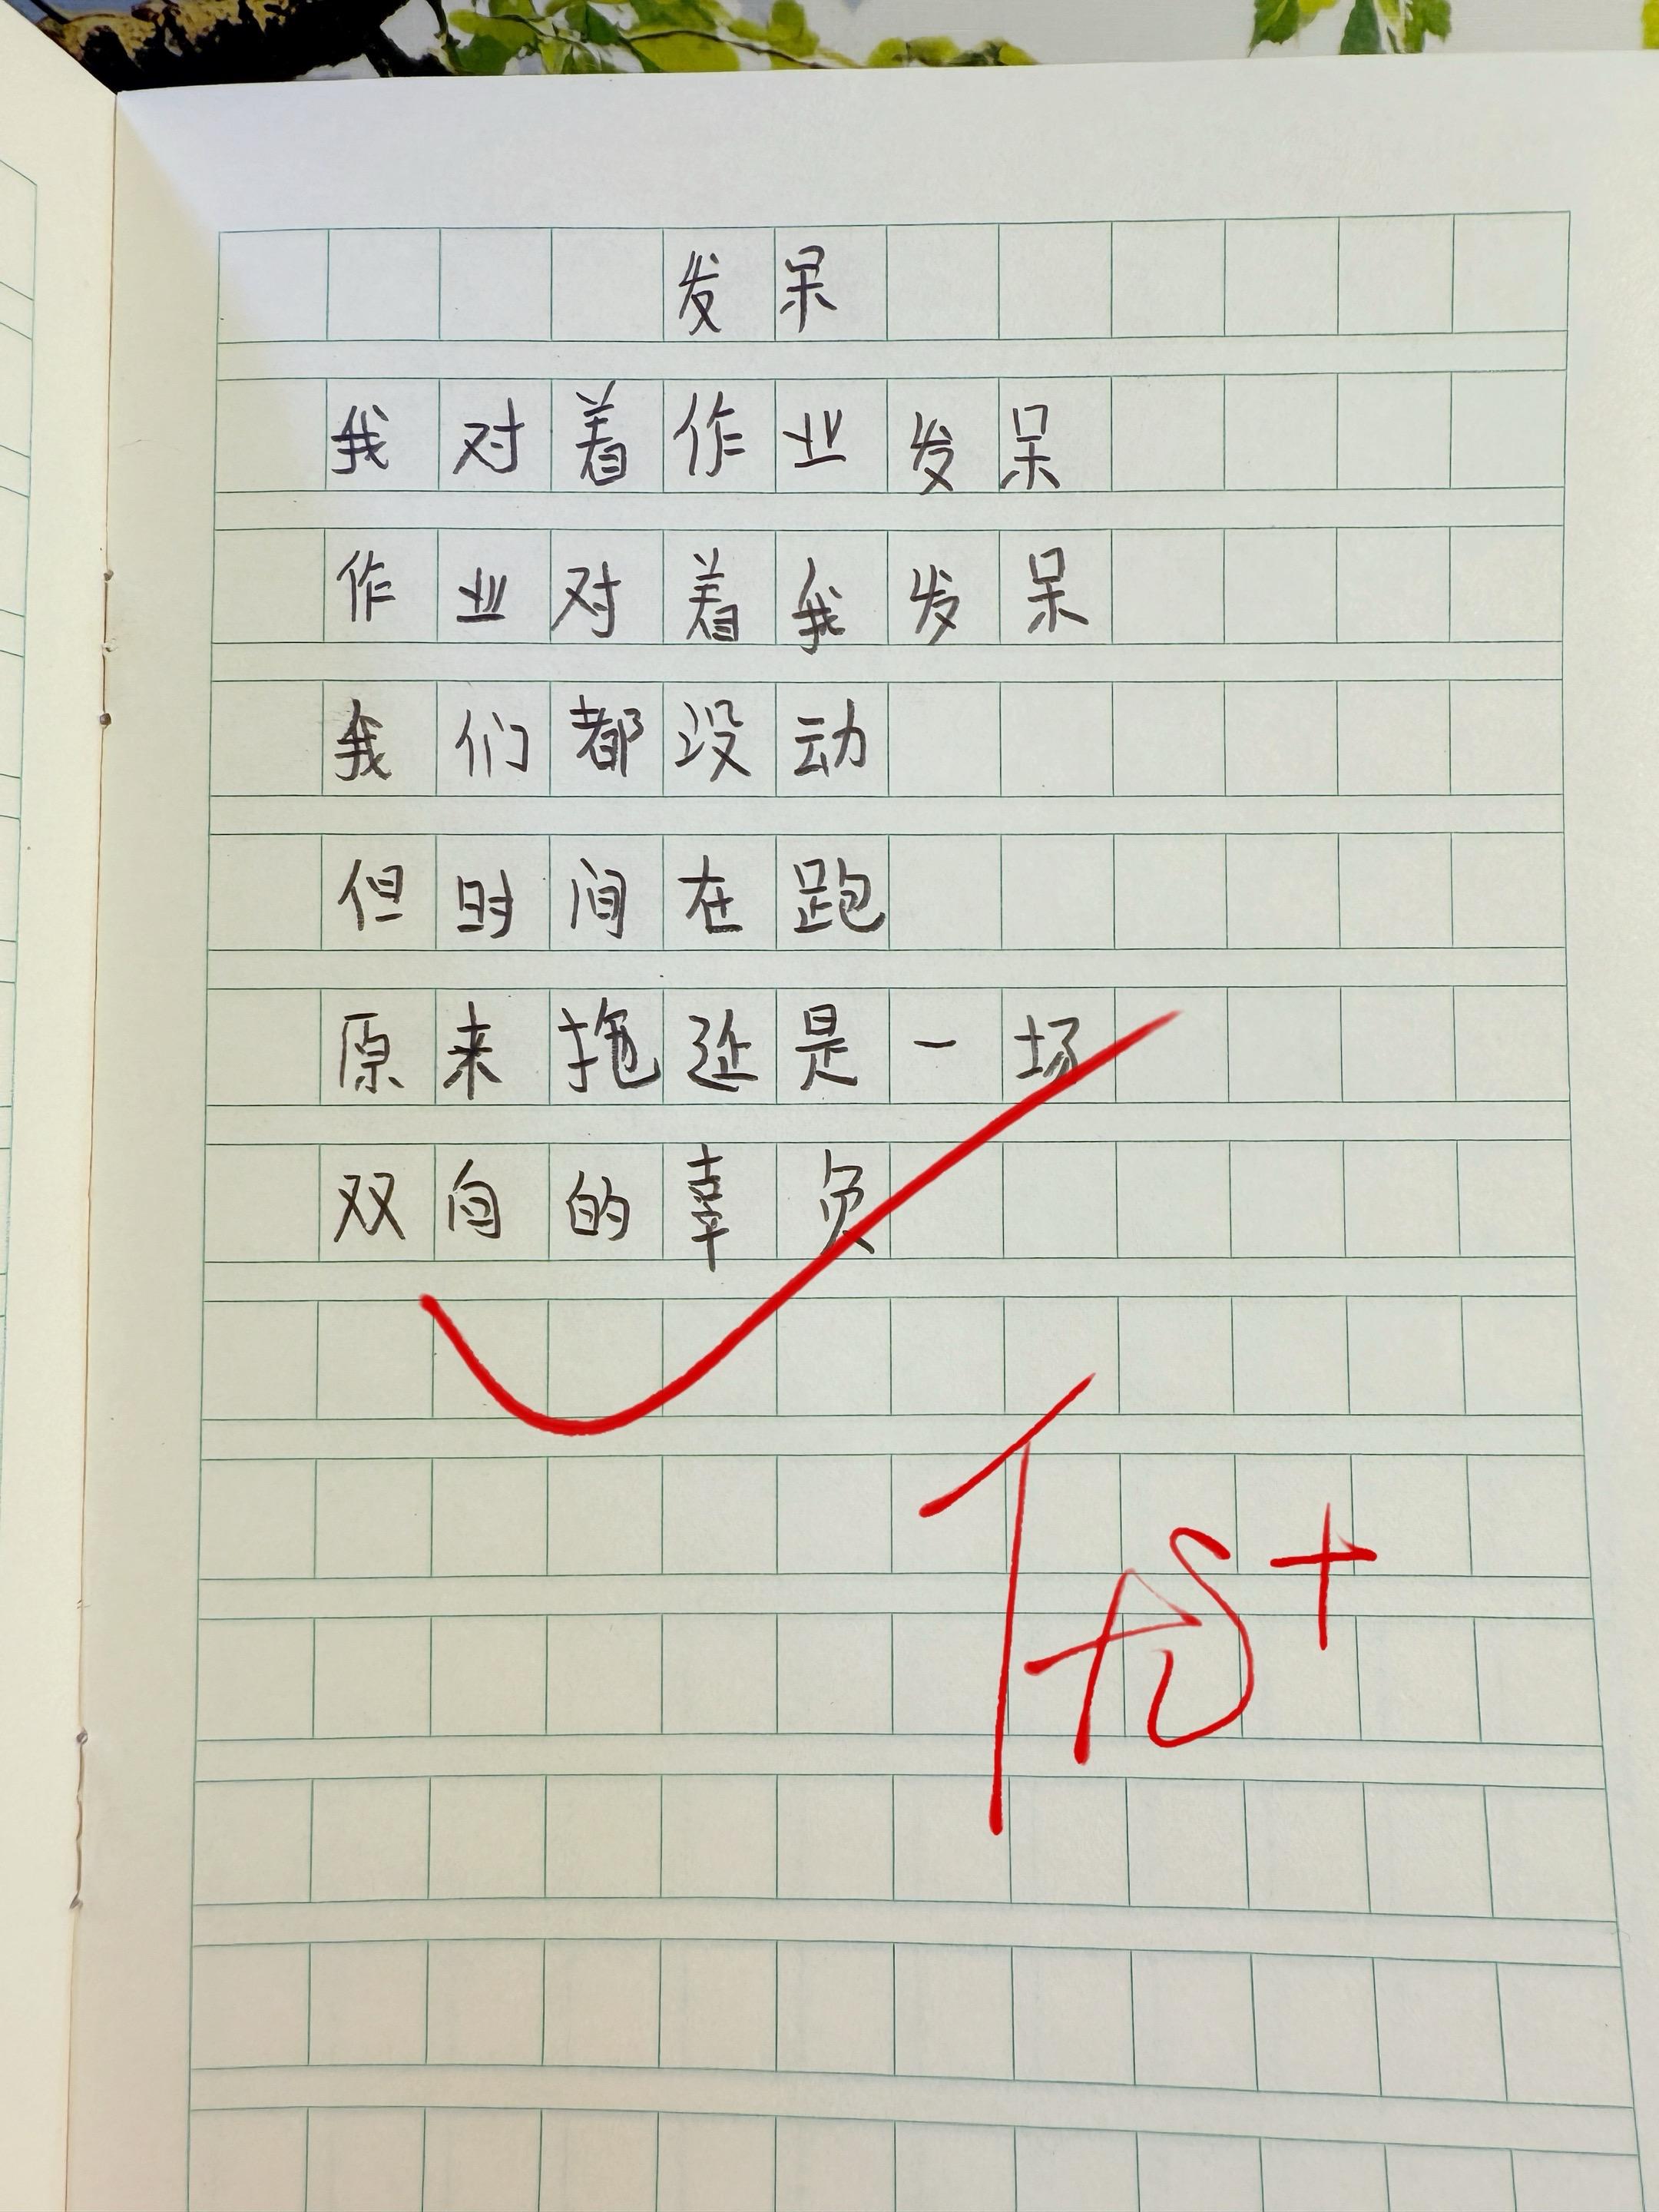 发呆
我对着作业发呆
作业对着我发呆
我们都没动
但时间在跑
原来拖延是一场
双向的辜负